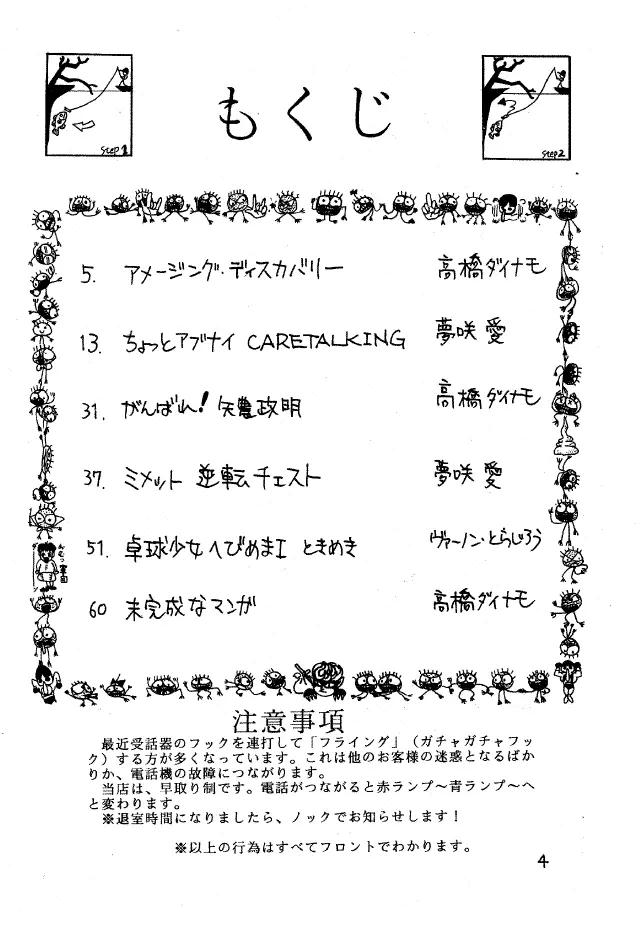 もくじ
Step1
Step2
5. アメージング・ディスカバリー 高橋ダイナモ
13. ちょっとアブナイ CARETALKING 夢咲 愛
31. がんばれ! 矢農政明 高橋ダイナモ
37. ミメット 逆転チェスト 夢咲 愛
51. 卓球少女へびめまI ときめき ヴァーノン・とらじろう
60 未完成なマンガ 高橋ダイナモ
注意事項
最近受話器のフックを連打して「フライング」(ガチャガチャフッ
ク)する方が多くなっています。これは他のお客様の迷惑となるばか
りか、電話機の故障につながります。
当店は、早取り制です。電話がつながると赤ランプ～青ランプ～へ
と変わります。
※退室時間になりましたら、ノックでお知らせします!
※以上の行為はすべてフロントでわかります。
4